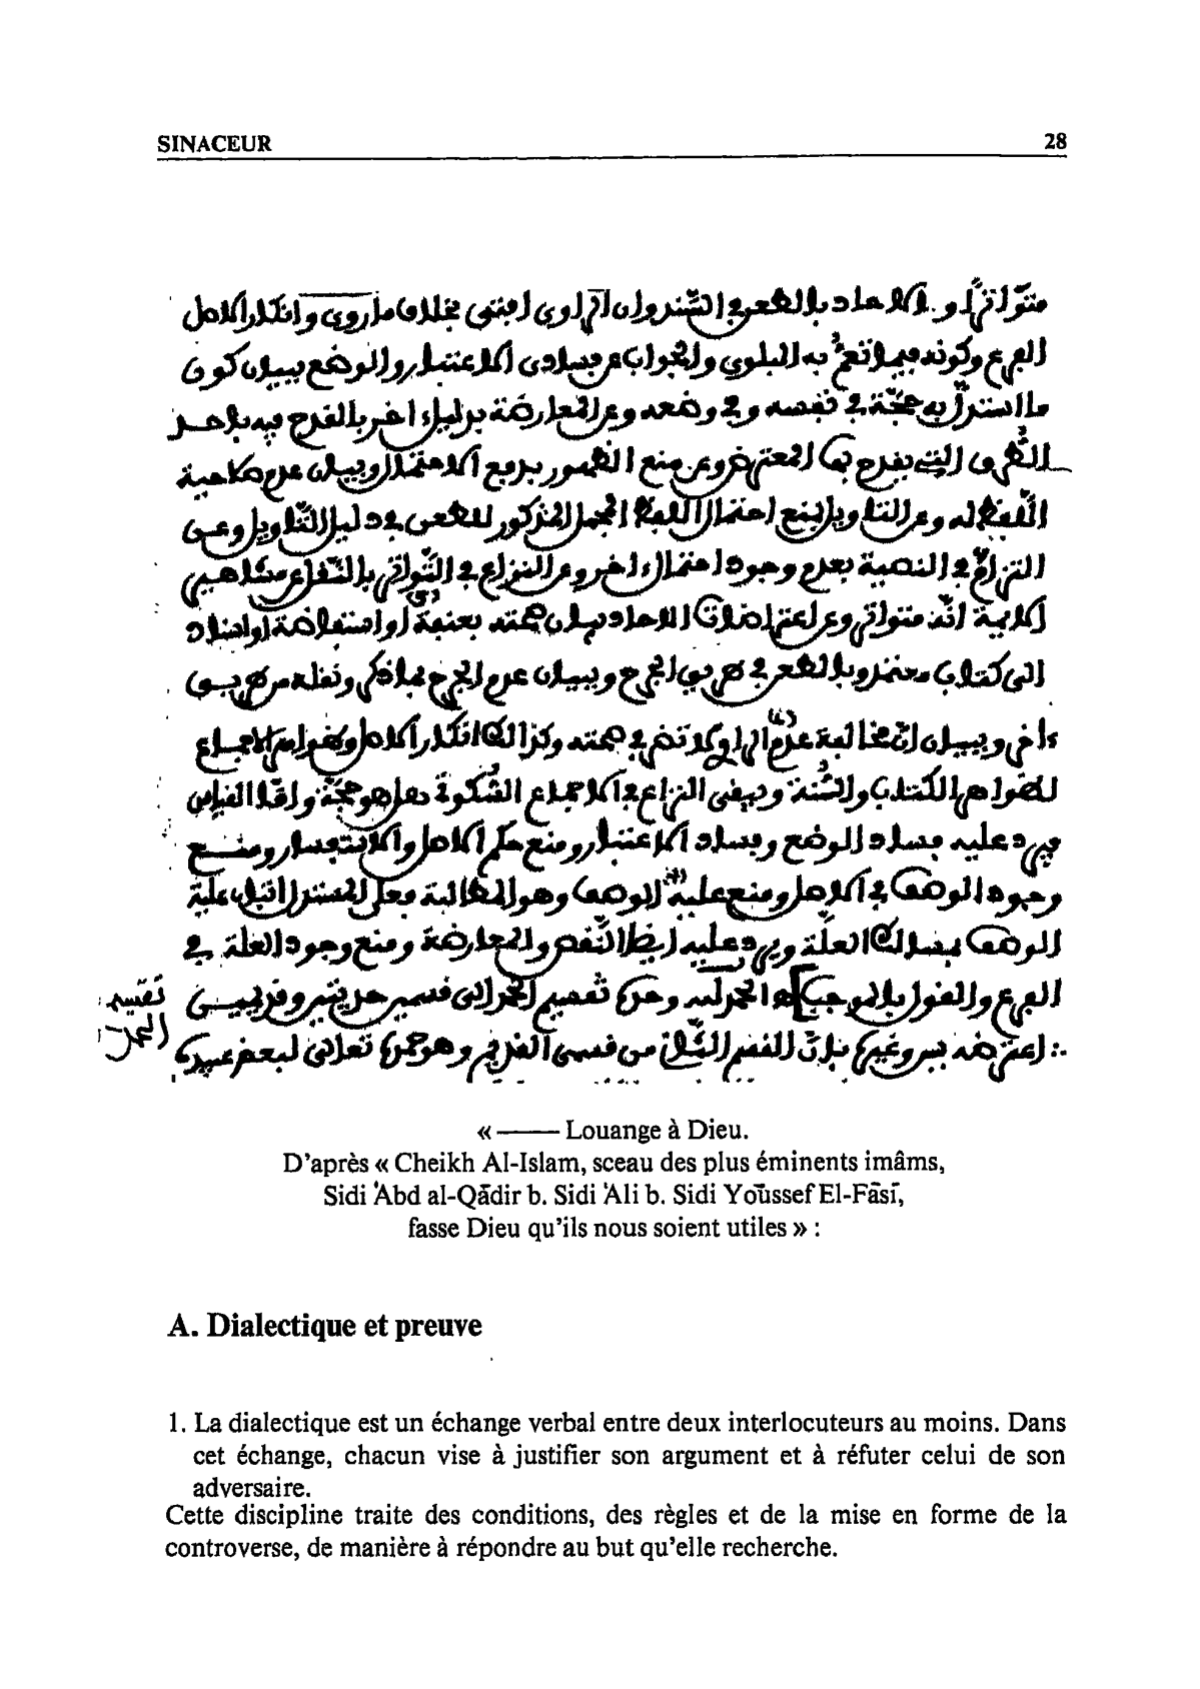 SINACEUR 28
متواترا و الاحاد بالطعن في السند وان الراوي افتى بخلاف ما روى وانكار الاصل
الفرع وكونه فيما تعم به البلوى والجواب عن فساد الاعتبار والوضع ببيان كون
ما استدل به حجة في نفسه وفي وضعه وعن المعارضة بدليل اخر بالقدح فيه باحد
الطرق التي يقدح بها المعترض وعن منع الظهور بدفع الاحتمال وببيان عدم صلاحية
اللفظ له وعن التاويل بمنع احتمال اللفظ المحمل المذكور للطعن في دليل التاويل وعن
النزاع في النصية بعدم وجود احتمال ءاخر وعن النزاع في التواتر بالنقل عن مشاهير
الايمة انه متواتر وعن اعتراضات الاحاد ببيان صحته بعنعنة او استفاضة او اسناد
الى كتاب معتمد وبالطعن في طريق الجرح وببيان عدم الجرح بما ذكر ونقله من طريق
ءاخر وببيان ان مخالفة عدم الراوي لا تضر في صحته وكذا لك انكار الاصل وظواهر الاجماع
لظواهر الكتاب والسنة ويبقى النزاع في الاجماع السكوتي هل هو حجة واما القياس
فيرد عليه فساد الوضع وفساد الاعتبار ومنع حكم الاصل والاستفسار ومنع
وجود الوصف في الاصل ومنع علية الوصف وهو المطالبة فعلى المستدل اثبات علية
الوصف بمسالك العلة ويرد عليه ايضا النقض والمعارضة ومنع وجود العلة في
الفرع والقول بالموجب هـ الحمد لله وحده تقسيم الحمد الى قسمين حديثين وقديمين
تقسيم
الحمد
اعترضه يس وغيره بان القسم الثاني من قسمي القديم وهو حمده تعالى لبعض عبيده
« —— Louange à Dieu.
D'après « Cheikh Al-Islam, sceau des plus éminents imâms,
Sidi 'Abd al-Qādir b. Sidi 'Ali b. Sidi Yoūssef El-Fāsī,
fasse Dieu qu'ils nous soient utiles » :
A. Dialectique et preuve
1. La dialectique est un échange verbal entre deux interlocuteurs au moins. Dans
cet échange, chacun vise à justifier son argument et à réfuter celui de son
adversaire.
Cette discipline traite des conditions, des règles et de la mise en forme de la
controverse, de manière à répondre au but qu'elle recherche.